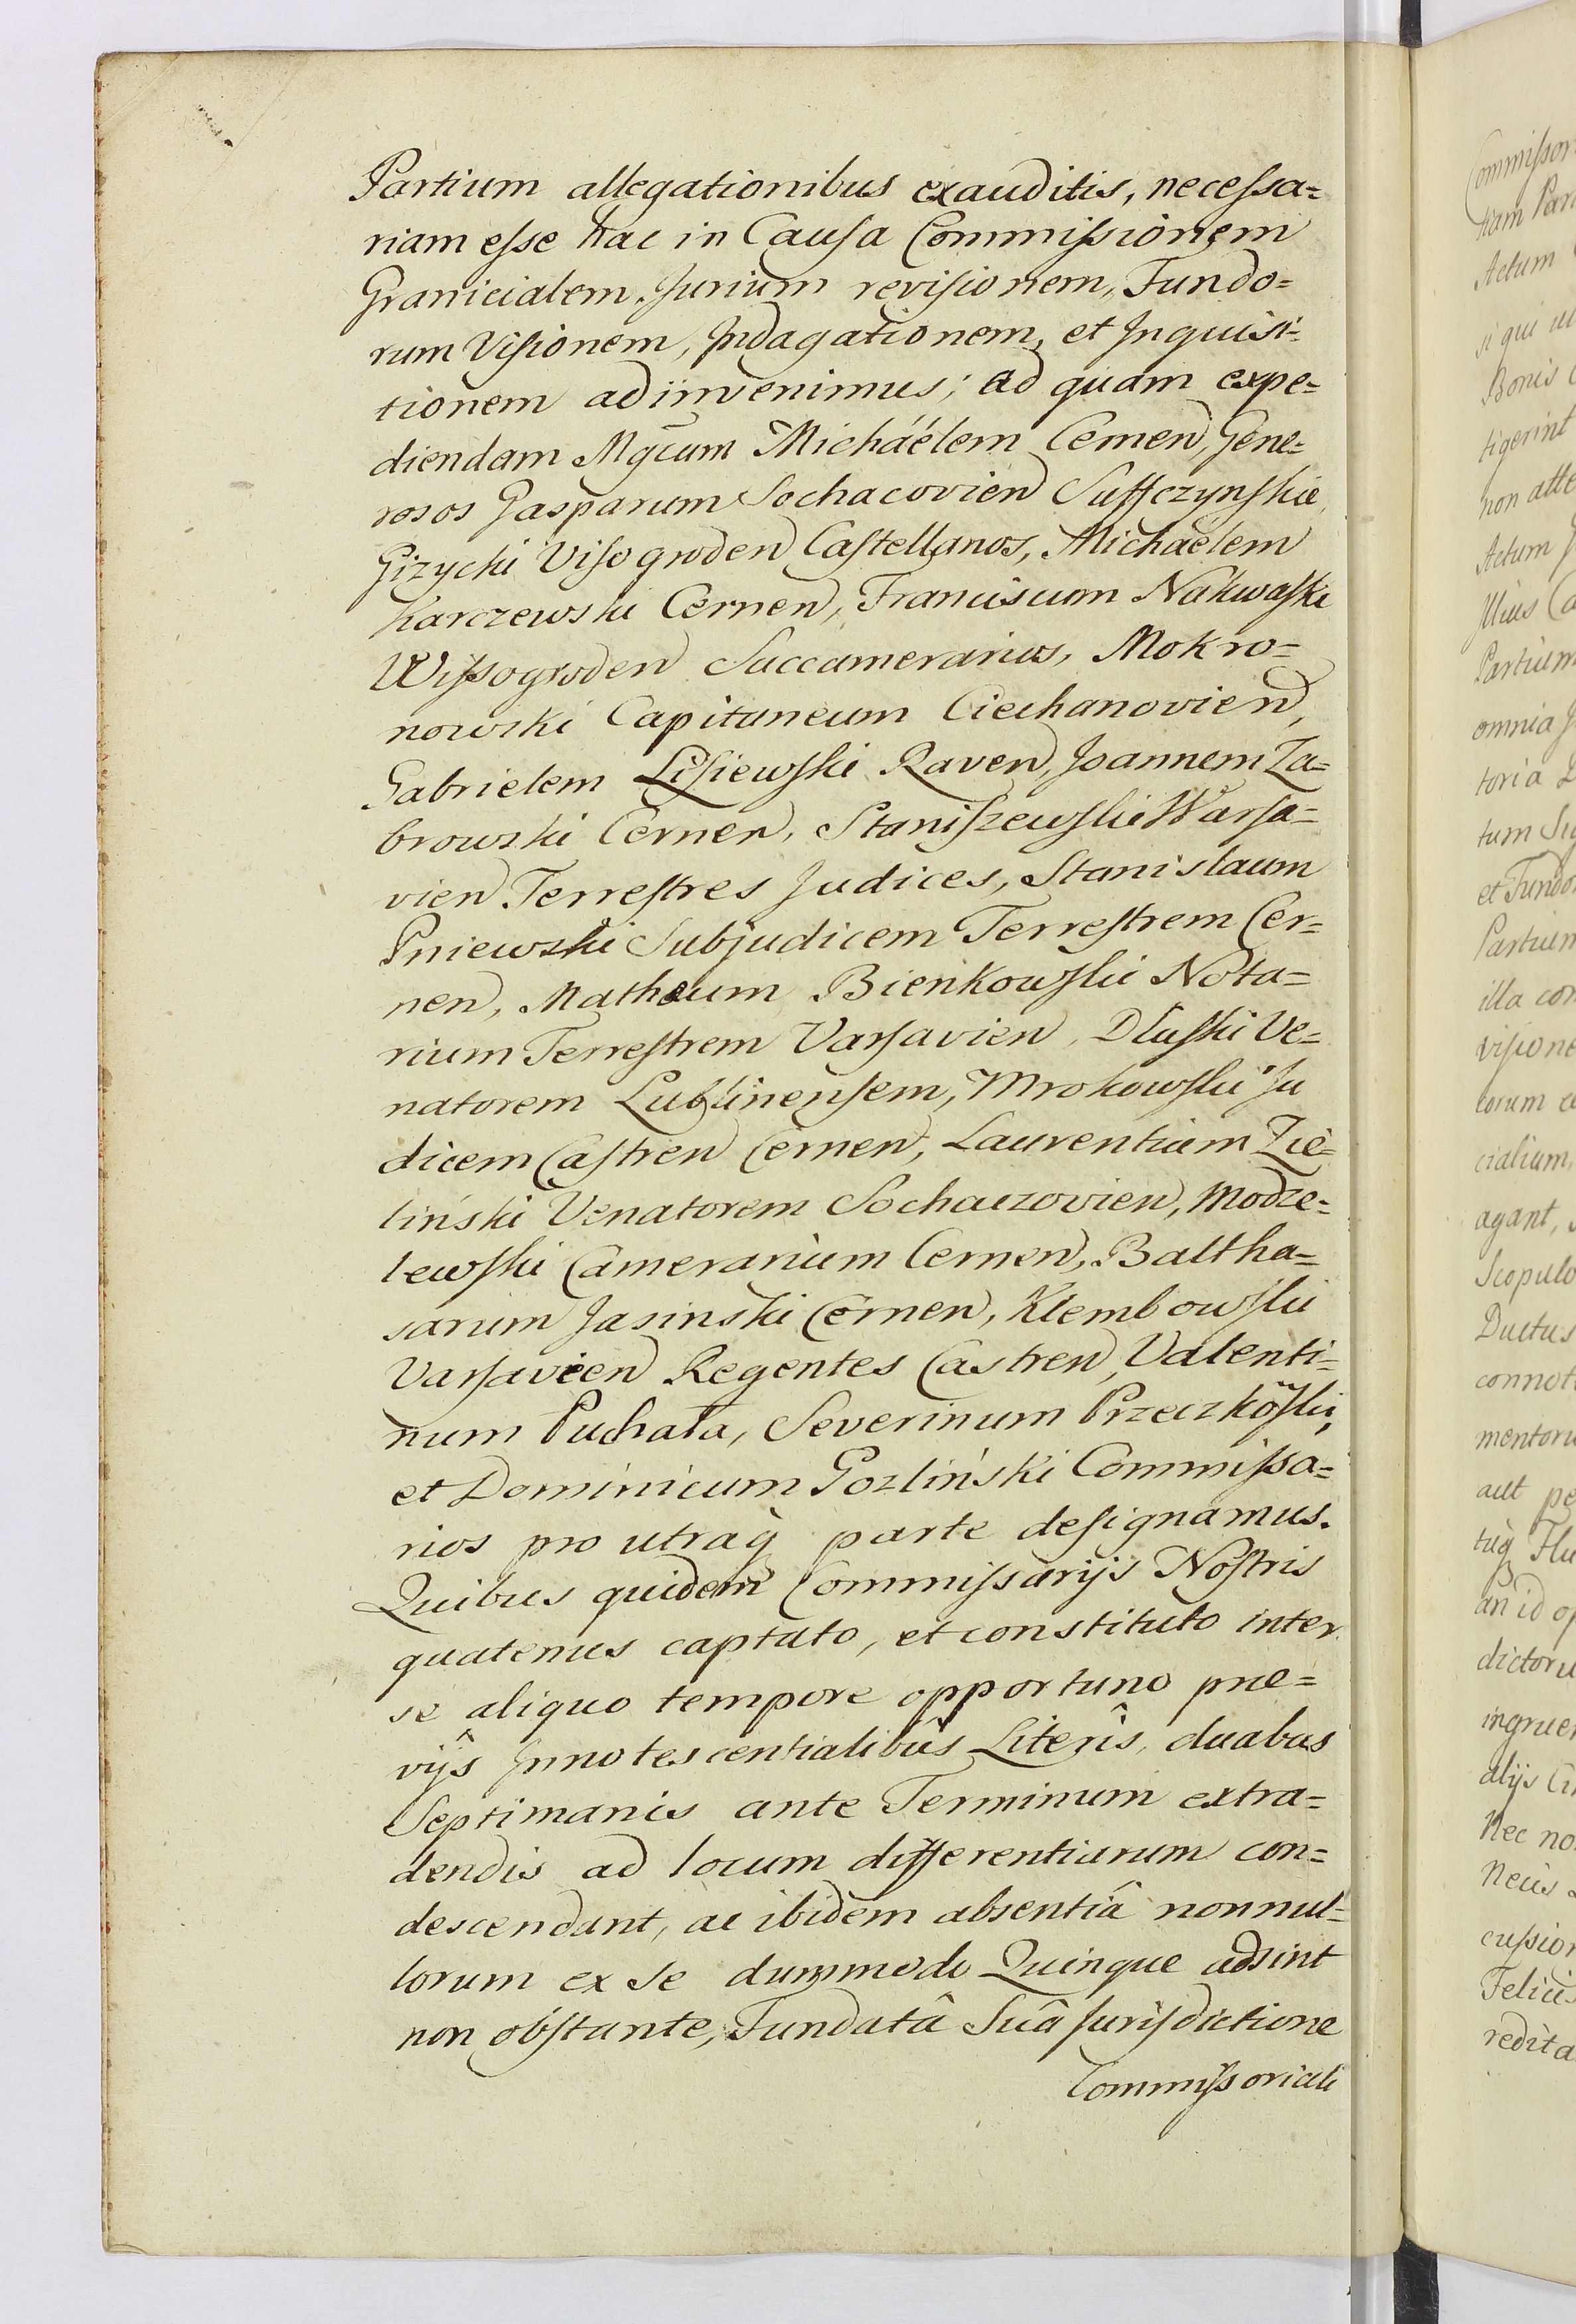 Partium allegationibus exauditis, necessa=
riam esse hac in Causa Commissionem
Granicialem, Jurium revisionem, Fundo=
rum Visionem, Indagationem, et Inquisi=
tionem adinvenimus; ad quam expe=
diendam Mgcum Michaélem Cernen, Gene=
rosos Gasparum Sochacovien Suffczynskie,
Gizycki Visogroden Castellanos, Michaelem
Karczewski Cernen, Franciscum Nakwaski
Wissogroden Succamerarios, Mokro=
nowski Capitaneum Ciechanovien,
Gabrielem Lisiewski Raven, Joannem Za=
browski Cernen, Staniszewski Warsa=
vien Terrestres Judices, Stanislaum
Pniewski Subjudicem Terrestrem Cer=
nen, Matheum Bienkowski Nota=
rium Terrestrem Varsavien, Dluski Ve=
natorem Lublinensem, Mrokowski Ju
dicem Castren Cernen, Laurentium Zie=
liński Venatorem Sochaczovien, Modze=
lewski Camerarium Cernen, Baltha=
sarum Jasinski Cernen, Klembowski
Varsavien Regentes Castren, Valenti=
num Puchała, Severinum Przeczkoski,
et Dominicum Gozliński Commissa=
rios pro utraq parte designamus.
Quibus quidem Commissarijs Nostris
quatenus captato, et constituto inter
se aliquo tempore opportuno prae=
vijs Innotescentialibûs Literîs, duabus
Septimanis ante Terminum extra=
dendis ad locum differentiarum con=
descendant, ac ibidem absentiâ nonnul=
lorum ex se dummodo Quinque adsint
non obstante, Fundatâ Suâ Jurisdictione
Commissoriali
Commissori
Actum
si qui
Bonis
tigerint
non atte
Actum
Illius
Partium
omnia
toria
tum
et Fundo
Partium
illa con
visione
cialium,
agant,
Scopulo
Ductus
connot
mentoru
aut pe
tuq Flu
an id op
dictoru
ingruen
alijs
Nec no
cussion
Felicis
redita